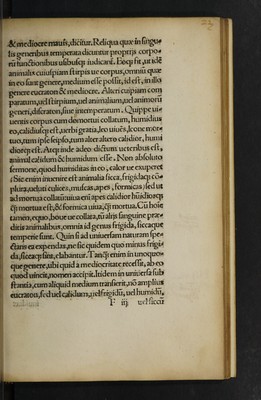 & mediocre magis, dicitur. Reliqua quæ in singu
lis generibus temperata dicuntur propriis corpo
rū functionibus usibusq; iudicant. Eoq; fit, ut idē
animal si cuiuspiam stirpis ue corpus, omniū quæ
in eo sunt genere, medium esse possit, id est, in illo
genere eucraton & mediocre. Alteri cuipiam com
paratum, uel stirpium, uel animalium, uel
generi, siue intemperatum. Quippe ui-
uentis corpus cum demortui collatum, humidius
eo, calidiusq; est, uerbi gratia, leo uiuēs, leone mor
tuo, tum ipse seipso, tum alter altero calidior, humi
diorq; est. Atq; inde adeo dictum ueteribus est,
animal calidum & humidum esse. Non absoluto
sermone, quod humiditas in eo, calor ue exuperet
Sic enim inuenire est animalia sicca, frigidaq; cō
plura, ueluti culices, muscas, apes, formicas, sed ut
ad mortua collatū, uiua eni apes calidior humidiorq;
q̄ mortua est, & formica uiua, q̄ mortua. Cū hoīe
tamen, equo, boue ue collata, tū aliis sanguine præ
ditis animalibus, omnia id genus frigida, siccaque
temperie sunt. Quin si ad uniuersam naturam spe-
ctaris ea expendas, ne sic quidem quo minus frigi-
da, siccaq; sint, elabuntur. Tanq̄ enim in unoquo-
que genere, ubi quid a mediocritate recessit, ab eo
quod uincit, nomen accipit. Itidem in uniuersa sub
stantia, cum aliquid medium transierit, nō amplius
eucraton, sed uel calidum, uel frigidū, uel humidū,
F iij uel siccū